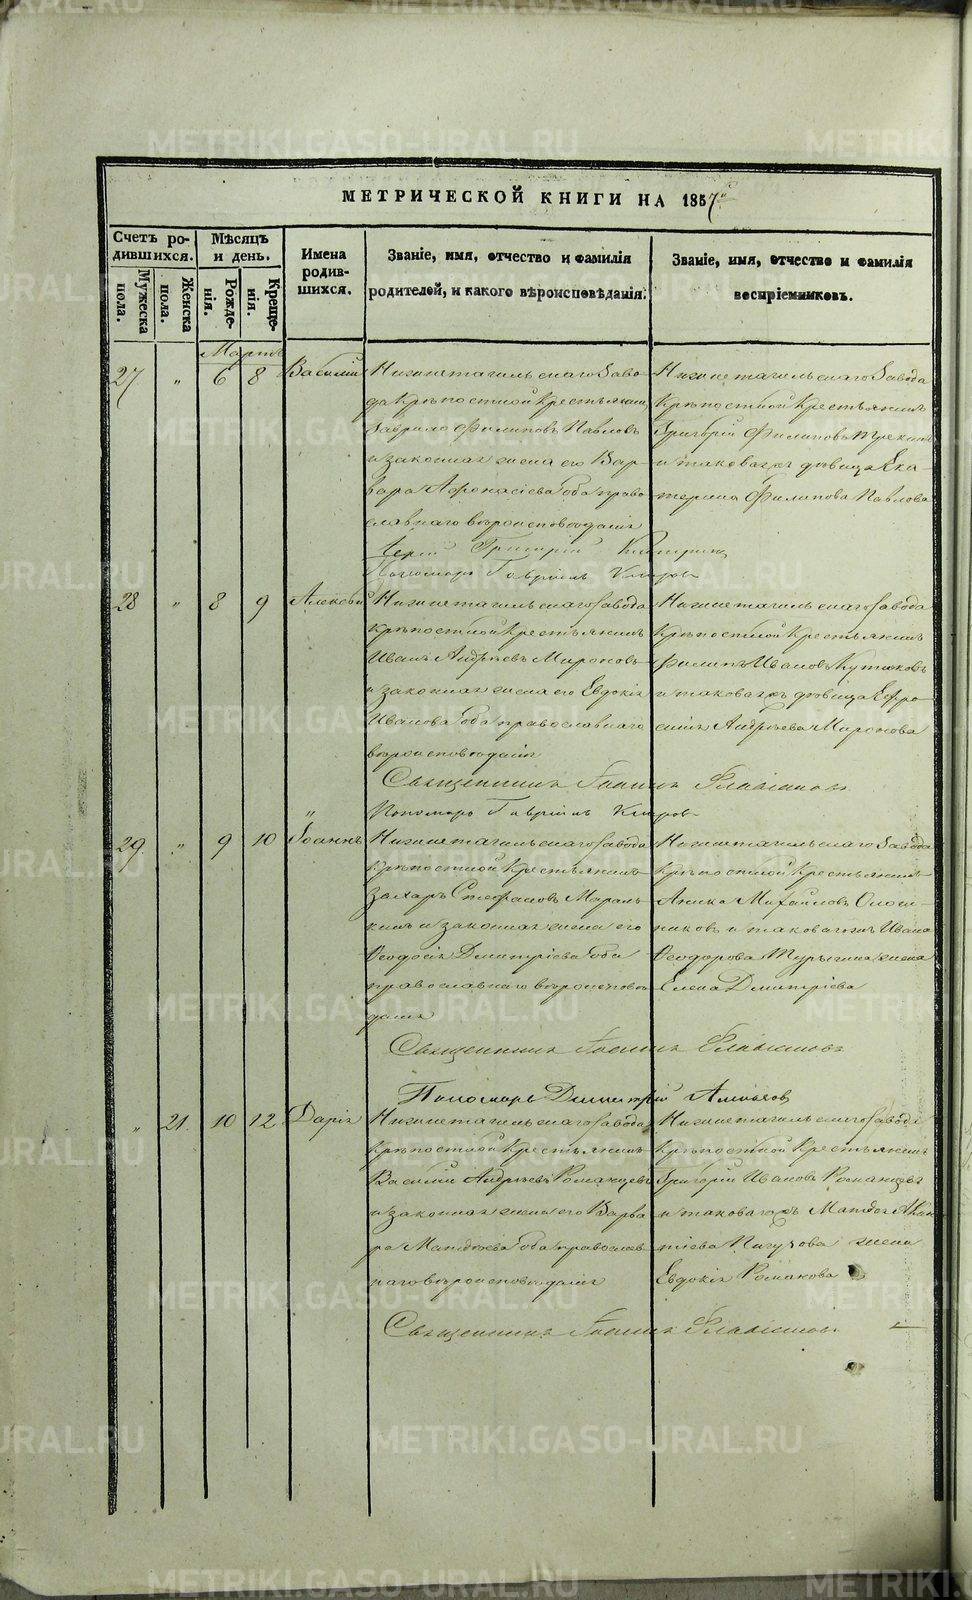 МЕТРИЧЕСКОЙ КНИГИ НА 1857
Счетъ родившихся.
Мужеска пола.
Женска пола.
Мѣсяцъ и день.
Рожденія.
Крещенія.
Имена родившихся.
Званіе, имя, отчество и фамилія родителей, и какого вѣроисповѣданія.
Званіе, имя, отчество и фамилія воспріемниковъ.
Мартъ
27 " 6 8 Василій
Нижнетагильскаго Заво-
да Крѣпостной Крестьянинъ
Гаврило Филиповъ Павловъ
и законная жена его Вар-
вара Афонасіева Оба право
славнаго вѣроисповѣданія
Нижнетагильскаго Завода
Крѣпостной Крестьянинъ
Григорій Филиповъ
и таковагожъ дѣвица Ека-
терина Филипова Павлова
Іерей Григорій
Пономарь Гавріилъ
28 " 8 9 Алексѣй
Нижнетагильскаго Завода
Крѣпостной Крестьянинъ
Иванъ Андрѣевъ Мироновъ
и законная жена его Евдокія
Иванова Оба православнаго
вѣроисповѣданія
Нижнетагильскаго Завода
Крѣпостной Крестьянинъ
Филипъ Ивановъ
и таковагожъ дѣвица Ефро-
синія Андрѣева Миронова
Священникъ Іоаннъ
Пономарь Гавріилъ
29 " 9 10 Іоаннъ
Нижнетагильскаго Завода
Крѣпостной Крестьянинъ
Захаръ Стефановъ
и законная жена его
Феодосія Димитріева Оба
православнаго вѣроисповѣ
данія
Нижнетагильскаго Завода
Крѣпостной Крестьянинъ
Аника Михайловъ
и таковагожъ Ивана
Феодорова жена
Елена Димитріева
Священникъ Іоаннъ
Пономарь Димитрій
" 21 10 12 Дарія
Нижнетагильскаго Завода
Крѣпостной Крестьянинъ
Василій Андрѣевъ Романцевъ
и законная жена его Варва
ра Матфѣева Оба православ
наго вѣроисповѣданія
Нижнетагильскаго Завода
Крѣпостной Крестьянинъ
Григорій Ивановъ Романцевъ
и таковагожъ
жена
Евдокія Романова
Священникъ Іоаннъ
METRIKI.GASO-URAL.RU